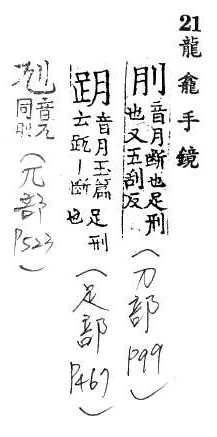 21 龍龕手鏡
刖 音月断也足刑
也又五刮反
(刀部 P99)
跀 音月玉篇
云丨断
足刑
也
(足部 P467)
音兀
同刖
(兀部 P523)